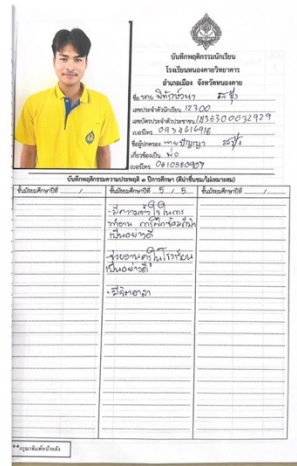 บันทึกพฤติกรรมนักเรียน
โรงเรียนหนองคายวิทยาคาร
อำเภอเมือง จังหวัดหนองคาย
ชื่อ นาย
เลขประจำตัวนักเรียน 12300
เลขบัตรประจำตัวประชาชน
เบอร์โทร. 0934616916
ชื่อผู้ปกครอง นายปัญญา
เกี่ยวข้องเป็น พ่อ
เบอร์โทร. 0610550907
บันทึกพฤติกรรมความประพฤติ ๓ ปีการศึกษา (ดีน่าชื่นชม/ไม่เหมาะสม)
ชั้นมัธยมศึกษาปีที่ / ชั้นมัธยมศึกษาปีที่ 5 / 5 ชั้นมัธยมศึกษาปีที่ /
- มีความตั้งใจในการ
ทำงาน การฝึกซ้อมกีฬา
เป็นอย่างดี
- ช่วยงานครูในโรงเรียน
เป็นอย่างดี
- มีจิตอาสา
**กรุณาพิมพ์หน้าหลัง